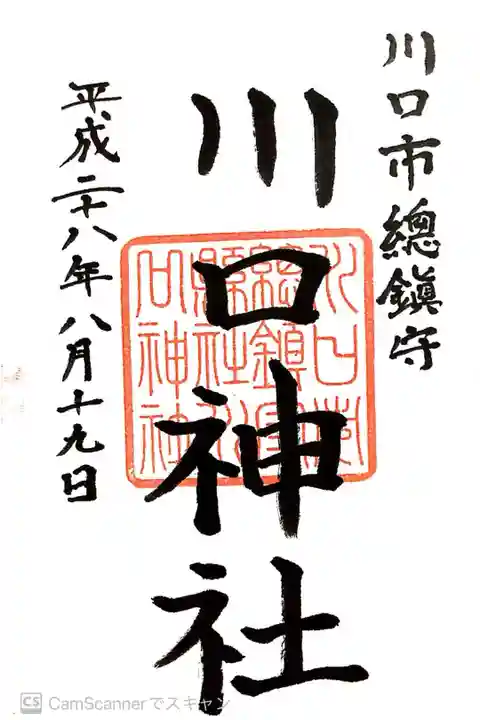 川口市總鎮守
川口神社
平成二十八年八月十九日
CS CamScannerでスキャン